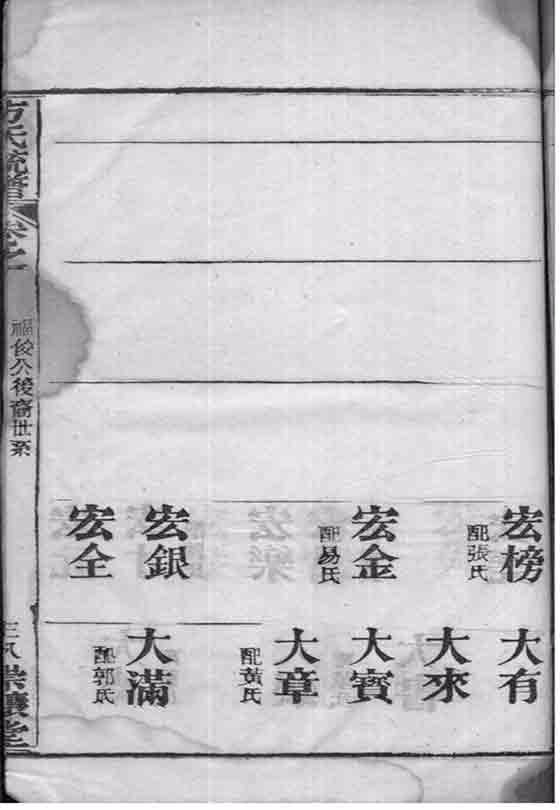 宏榜
配張氏
宏金
配易氏
宏銀
宏全
大有
大來
大寶
大章
配黃氏
大滿
配郭氏
方氏統譜
卷之
福俊公後裔世系
三八
堂